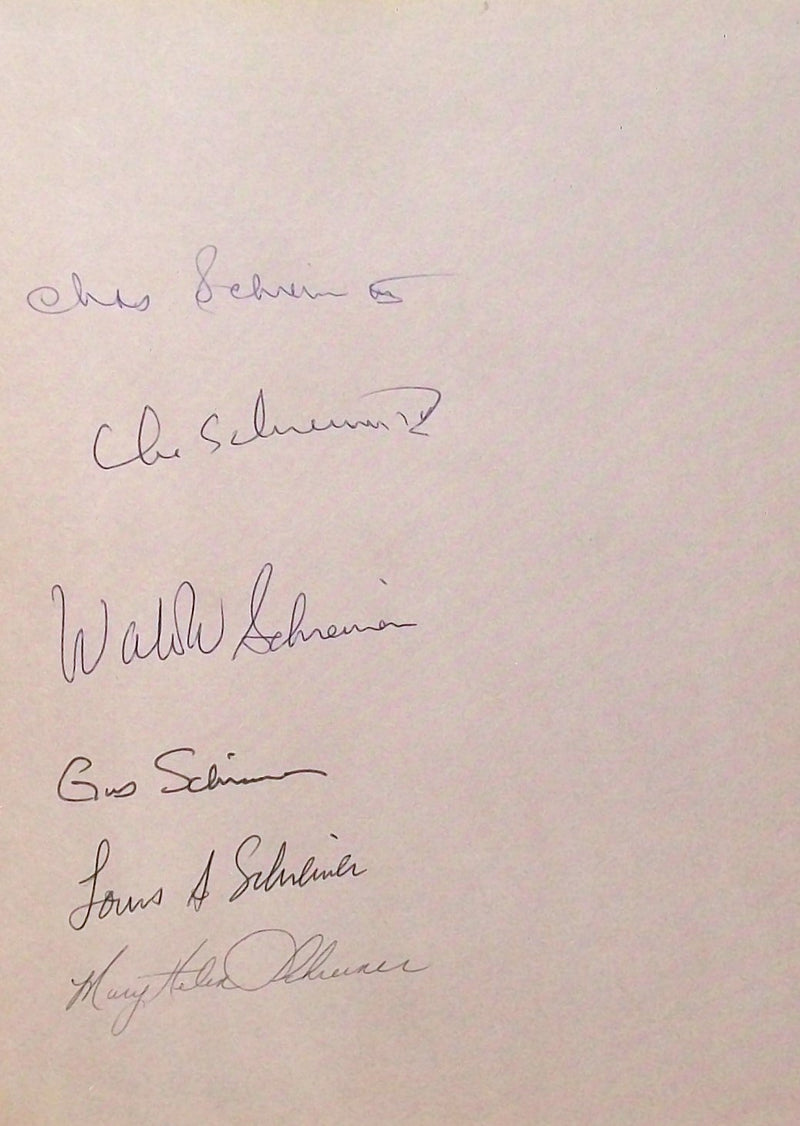 Chas Schreiner III
Chas Schreiner IV
Walter Schreiner
Gus Schreiner
Louis A Schreiner
Mary Helen Schreiner